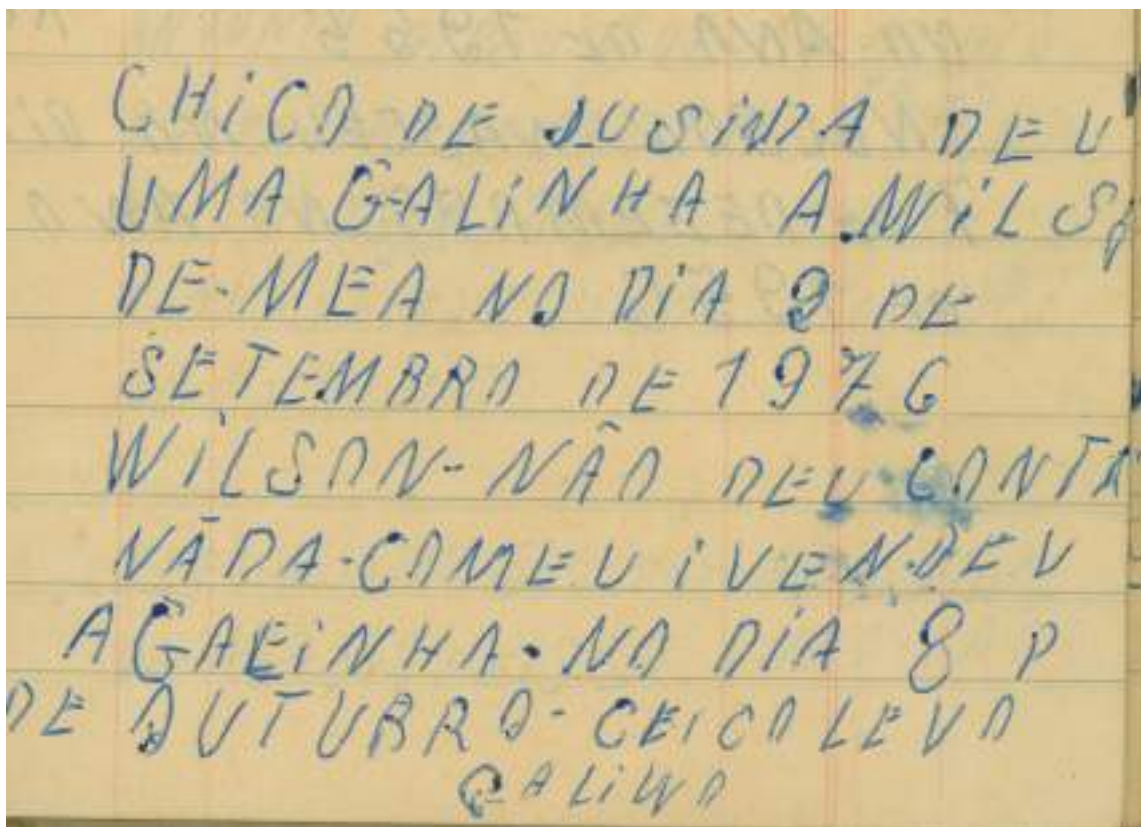 CHiCO DE LUSiNDA DEU
UMA GALiNHA A WiLSO
DE-MEA NO DiA 9 DE
SETEMBRO DE 1976
WiLSON-NÃO DEU CONTA
NADA-COMEU i VENDEU
A GALiNHA-NO DiA 8 P
DE OUTUBRO-CEICO LEVO
GALiWO